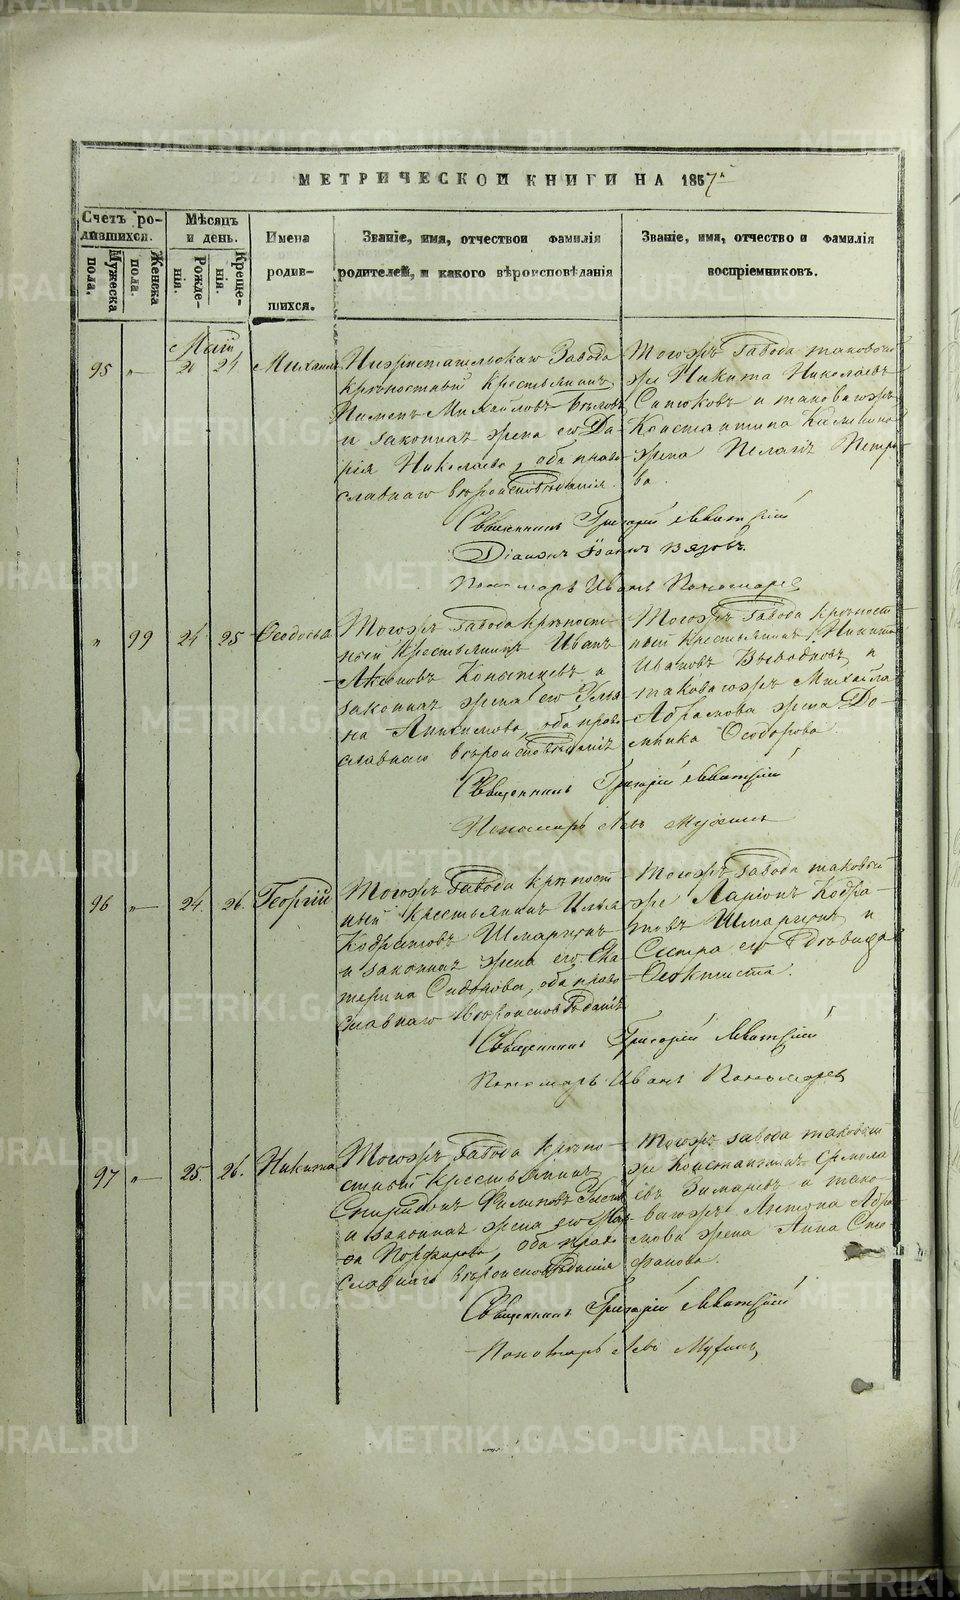 МЕТРИЧЕСКОЙ КНИГИ НА 1857
Счетъ ро-
дившихся.
Мужеска
пола.
Женска
пола.
Мѣсяцъ
и день.
Рожде-
нія.
Креще-
нія.
Имена
родив-
шихся.
Званіе, имя, отчествои фамилія
родителей, и какого вѣроисповѣданія
Званіе, имя, отчество и фамилія
воспріемниковъ.
Май
95 „ 21 Михаилъ
Завода
крѣпостный Крестьянинъ
Пименъ Михайловъ
и законная жена его Да-
рія Николаева, оба право-
славнаго вѣроисповѣданія.
Тогожъ Завода таковый
же Никита Николаевъ
и таковагожъ
Константина
жена Пелагія Петро-
ва.
Священникъ Григорій
Діаконъ Іоаннъ
Пономарь Иванъ Пономарев
„ 99 24 25 Ѳеодосья
Тогожъ Завода крѣпост-
ный Крестьянинъ Иванъ
и
законная жена его Улья-
на, оба право-
славнаго вѣроисповѣданія
Тогожъ Завода Крѣпост-
ный Крестьянинъ Никита
Ивановъ и
таковагожъ Михайла
Абрамова жена До-
мника Ѳеодорова.
Священникъ Григорій
Пономарь Левъ Мухинъ
96 „ 24. 26. Георгій
Тогожъ Завода Крѣпост-
ный Крестьянинъ Илья
Кодратовъ Шмаринъ
и законная жена его Ека-
терина Сидорова, оба право-
славнаго Вѣроисповѣданія
Тогожъ Завода таковый
же Ларіонъ Кодра-
товъ Шмаринъ и
Сестра его дѣвица
Ѳеоктиста.
Священникъ Григорій
Пономарь Иванъ Пономарев
97 „ 25. 26. Никита
Тогожъ Завода крѣпо-
стный Крестьянинъ
Спиридонъ Филиповъ
и законная жена его
оба право-
славнаго вѣроисповѣданія
Тогожъ завода таковый
же Константинъ Ермола-
евъ и тако-
вагожъ Антона Абра-
мова жена Анна Сте-
фанова.
Священникъ Григорій
Пономарь Левъ Мухинъ
METRIKI.GASO-URAL.RU